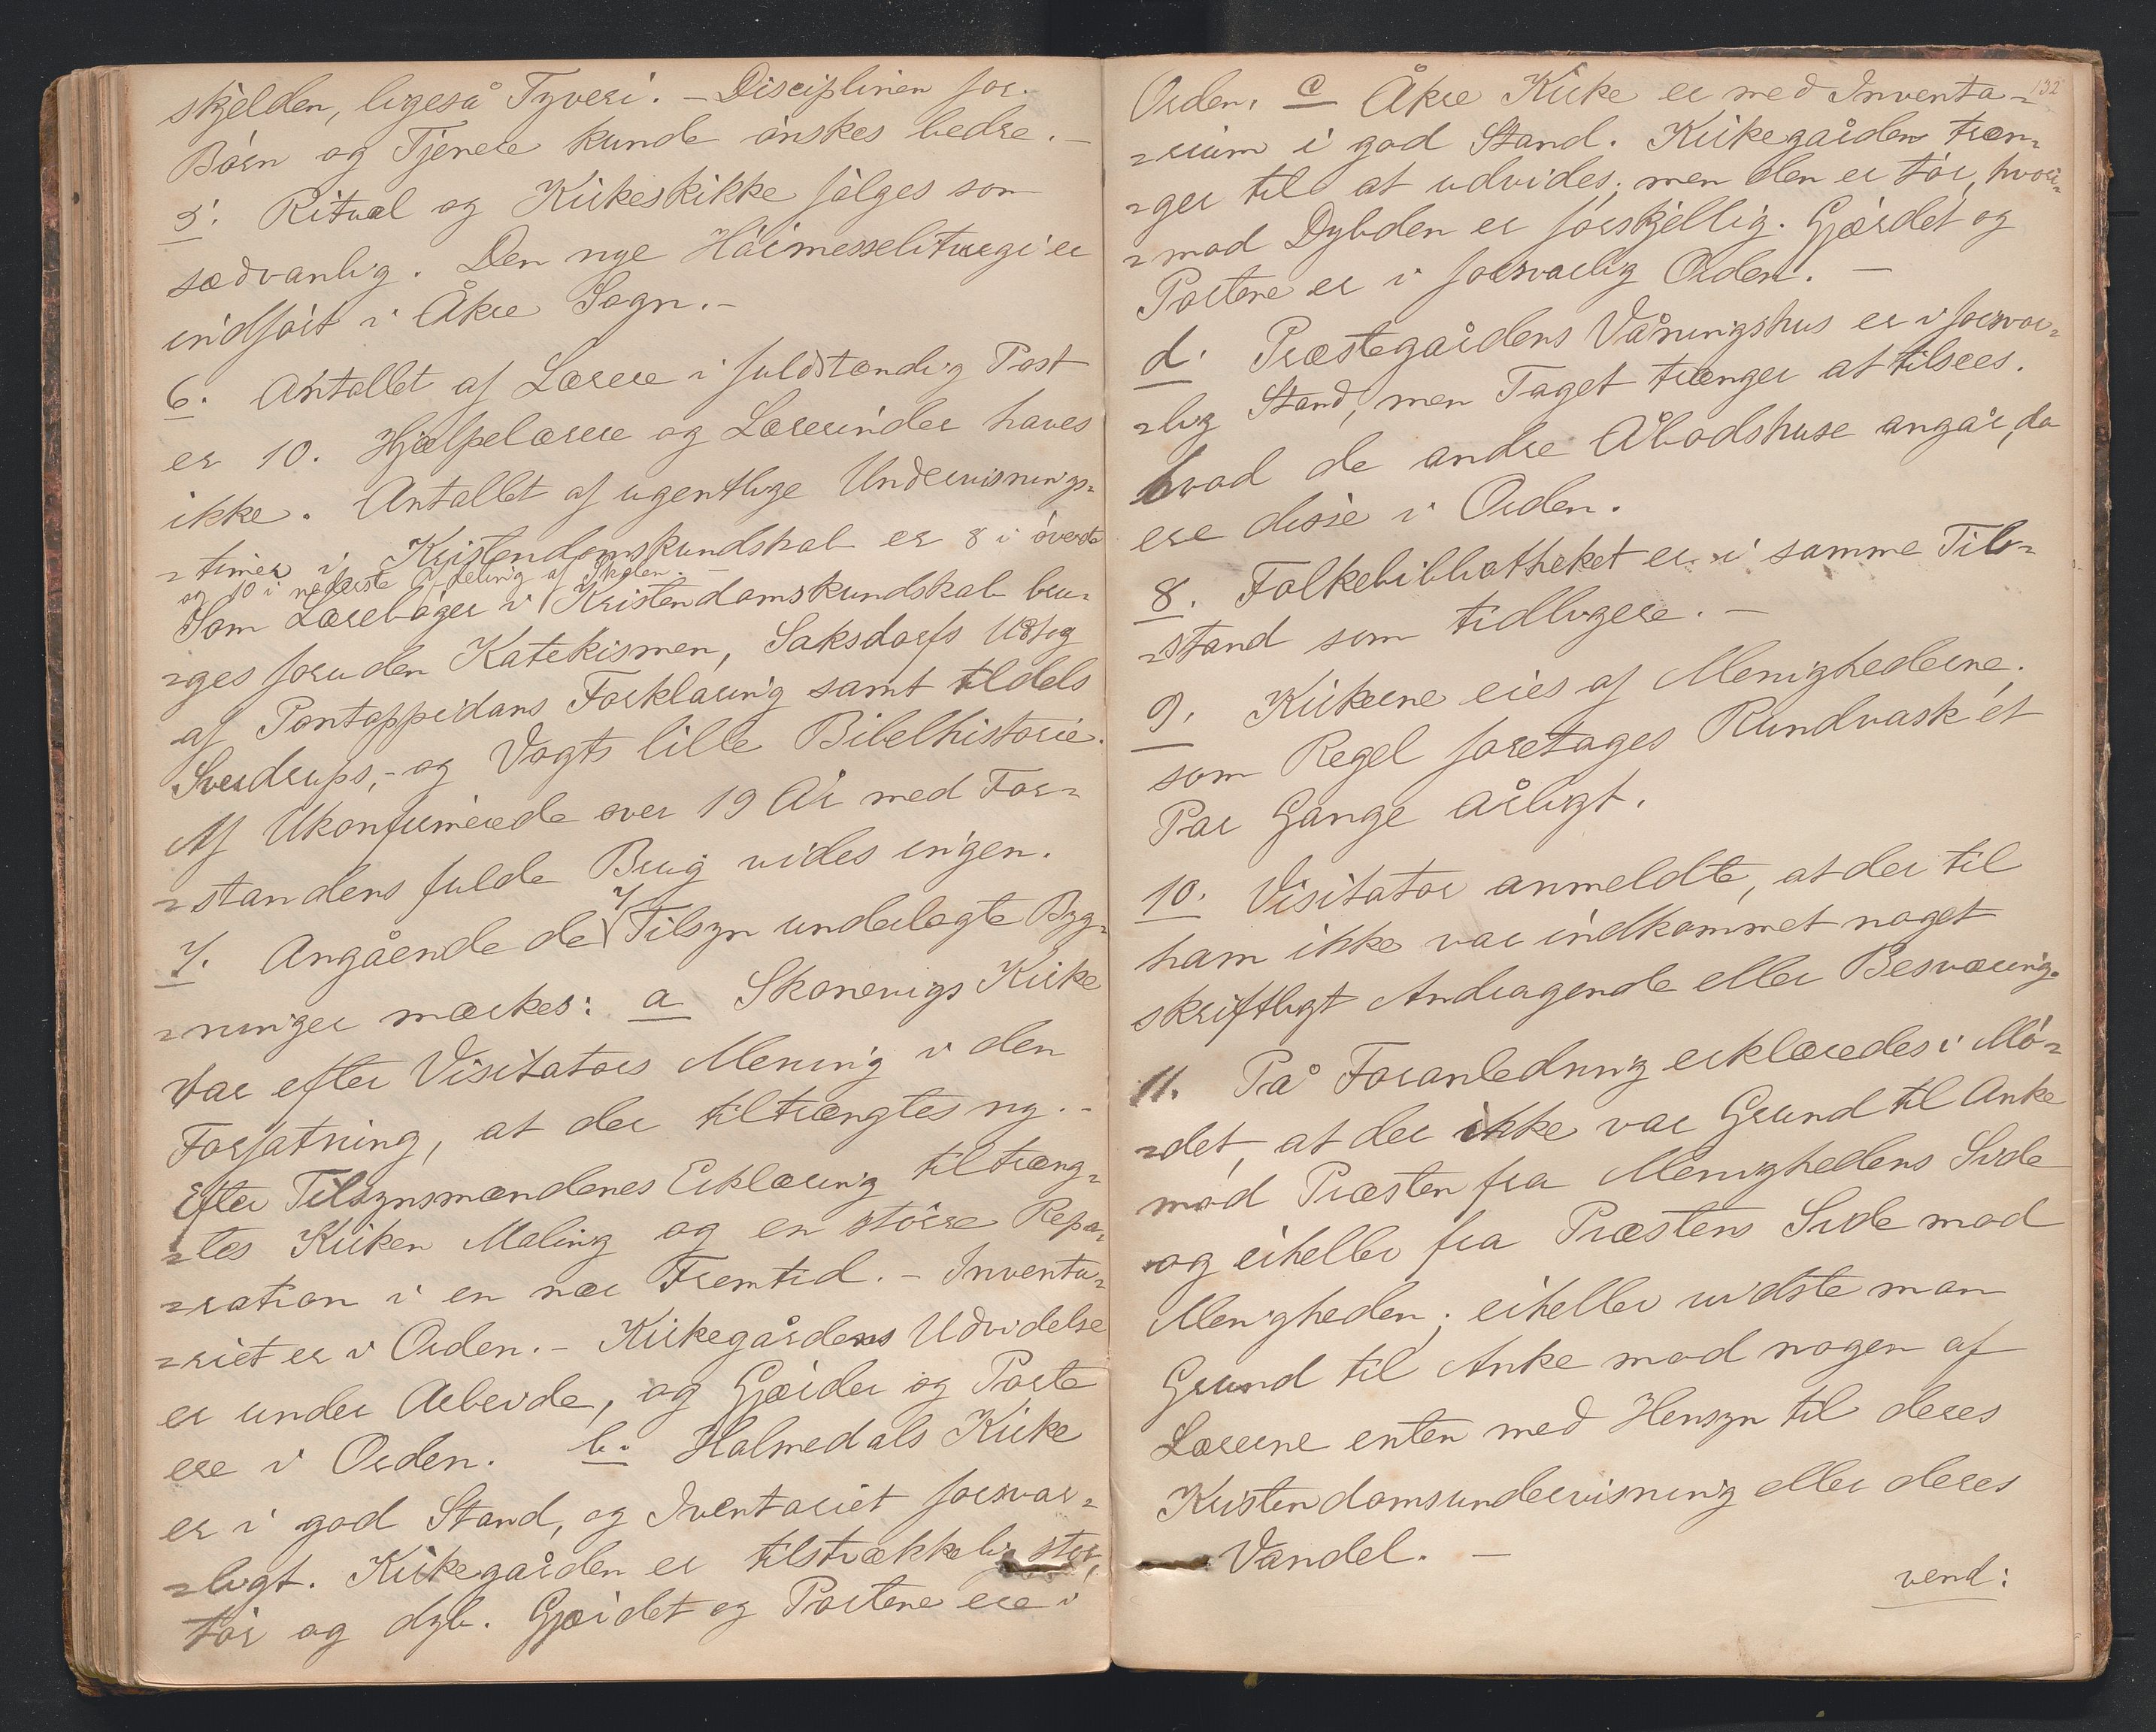 skjelden, ligeså Tyveri. – Disciplinen for
Börn og Tjenere kunde önskes bedre. –
5. Ritual og Kirkeskikke fölges som
sædvanlig. Den nye Höimesseliturgi er
indfört i Åkre Sogn. –
6. Antallet af Lærere i fuldstændig Post
er 10. Hjælpelærere og Lærerinder haves
ikke. Antallet af ugentlige Undervisnings-
-timer i Kristendomskundskab er 8 i överste
og 10 i nederste Afdeling af Skolen. –
Som Læreböger i Kristendomskundskab bru-
-ges foruden Katekismen, Saksdorfs Udtog
af Pontoppidans Forklaring samt tildels
Sverdrups, – og Vogts lille Bibelhistorie.
Af Ukonfirmerede over 19 År med For-
-standens fulde Brug vides ingen.
7. Angående de Tilsyn underlagte Byg-
-ninger mærkes: a Skonevigs Kirke
var efter Visitators Mening i den
Forfatning, at der tiltrængtes ny. –
Efter Tilsynsmændenes Erklæring tiltræng-
-tes Kirken Maling og en större Repa-
-ration i en nær Fremtid. – Inventa-
-riet er i Orden. – Kirkegårdens Udvidelse
er under Arbeide, og Gjærder og Porte
ere i Orden. b. Holmedals Kirke
er i god Stand, og Iventariet forsvar-
-ligt. Kirkegården er tilstrækkelig stor,
tör og dyb. Gjærdet og Portene ere i
132
Orden. c Åkre Kirke er med Inventa-
-rium i god Stand. Kirkegården træn-
-ger til at udvides, men den er tör, hvori-
-mod Dybden er forskjellig. Gjærdet og
Portene er i forsvarlig Orden. –
d. Præstegårdens Våningshus er i forsvar-
-lig Stand, men Taget trænger at tilsees.
hvad de andre Åbodshuse angår, da
ere disse i Orden.
8. Folkebibliotheket er i samme Til-
-stand som tidligere. –
9. Kirkerne eies af Menighederne;
som Regel foretages Rundvask ét
Par Gange årligt.
10. Visitator anmeldte, at der til
ham ikke var indkommet noget
skriftligt Andragende eller Besværing.
11. På Foranledning erklæredes i Mö-
-det, at der ikke var Grund til Anke
mod Præsten fra Menighedens Side
og eiheller fra Præstens Side mod
Menigheden; eiheller vidste man
Grund til Anke mod nogen af
Lærerne enten med Hensyn til deres
Kristendomsundervisning eller deres
Vandel. –
vend: